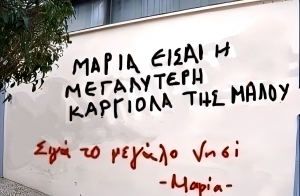 ΜΑΡΙΑ ΕΙΣΑΙ Η
ΜΕΓΑΛΥΤΕΡΗ
ΚΑΡΓΙΟΛΑ ΤΗΣ ΜΑΛΟΥ
Σιγά το μεγάλο νησί
-Μαρία-